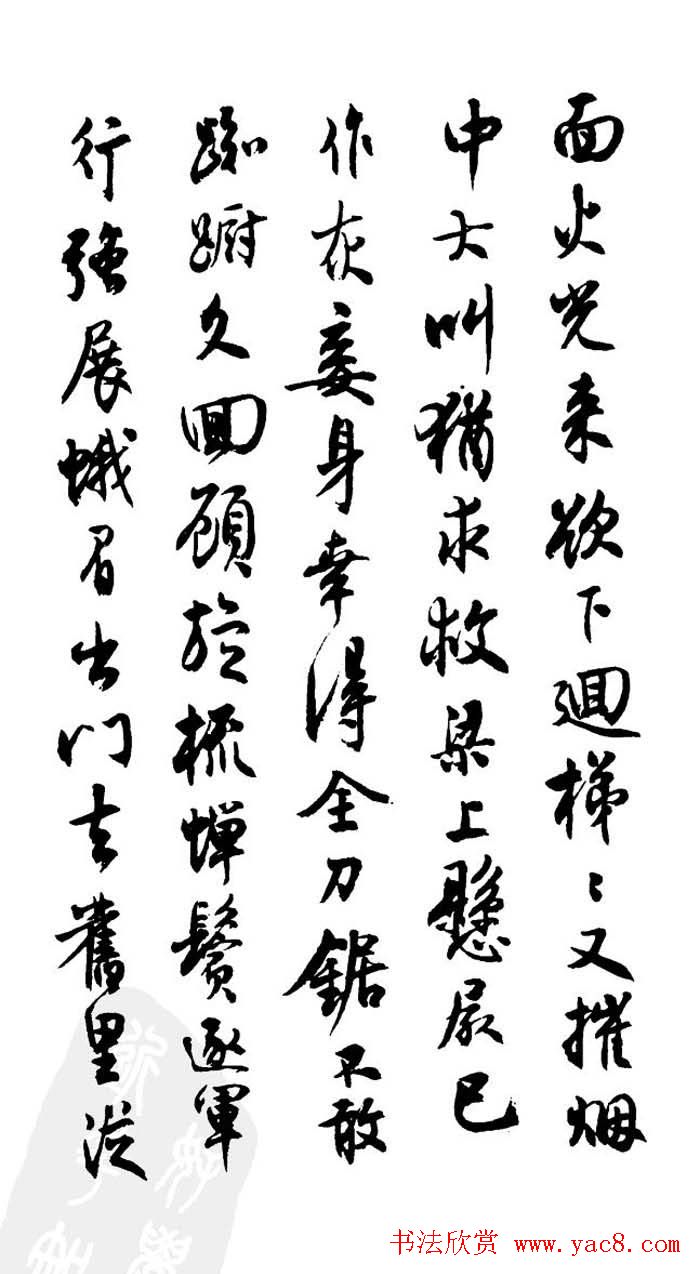 面火光来欲下迴梯〻又摧烟
中大叫猶求救梁上懸屍已
作灰妾身幸得全刀鋸不敢
踟蹰久回顧旋梳蟬鬢逐軍
行強展蛾眉出門去舊里從
书法欣赏 www.yac8.com